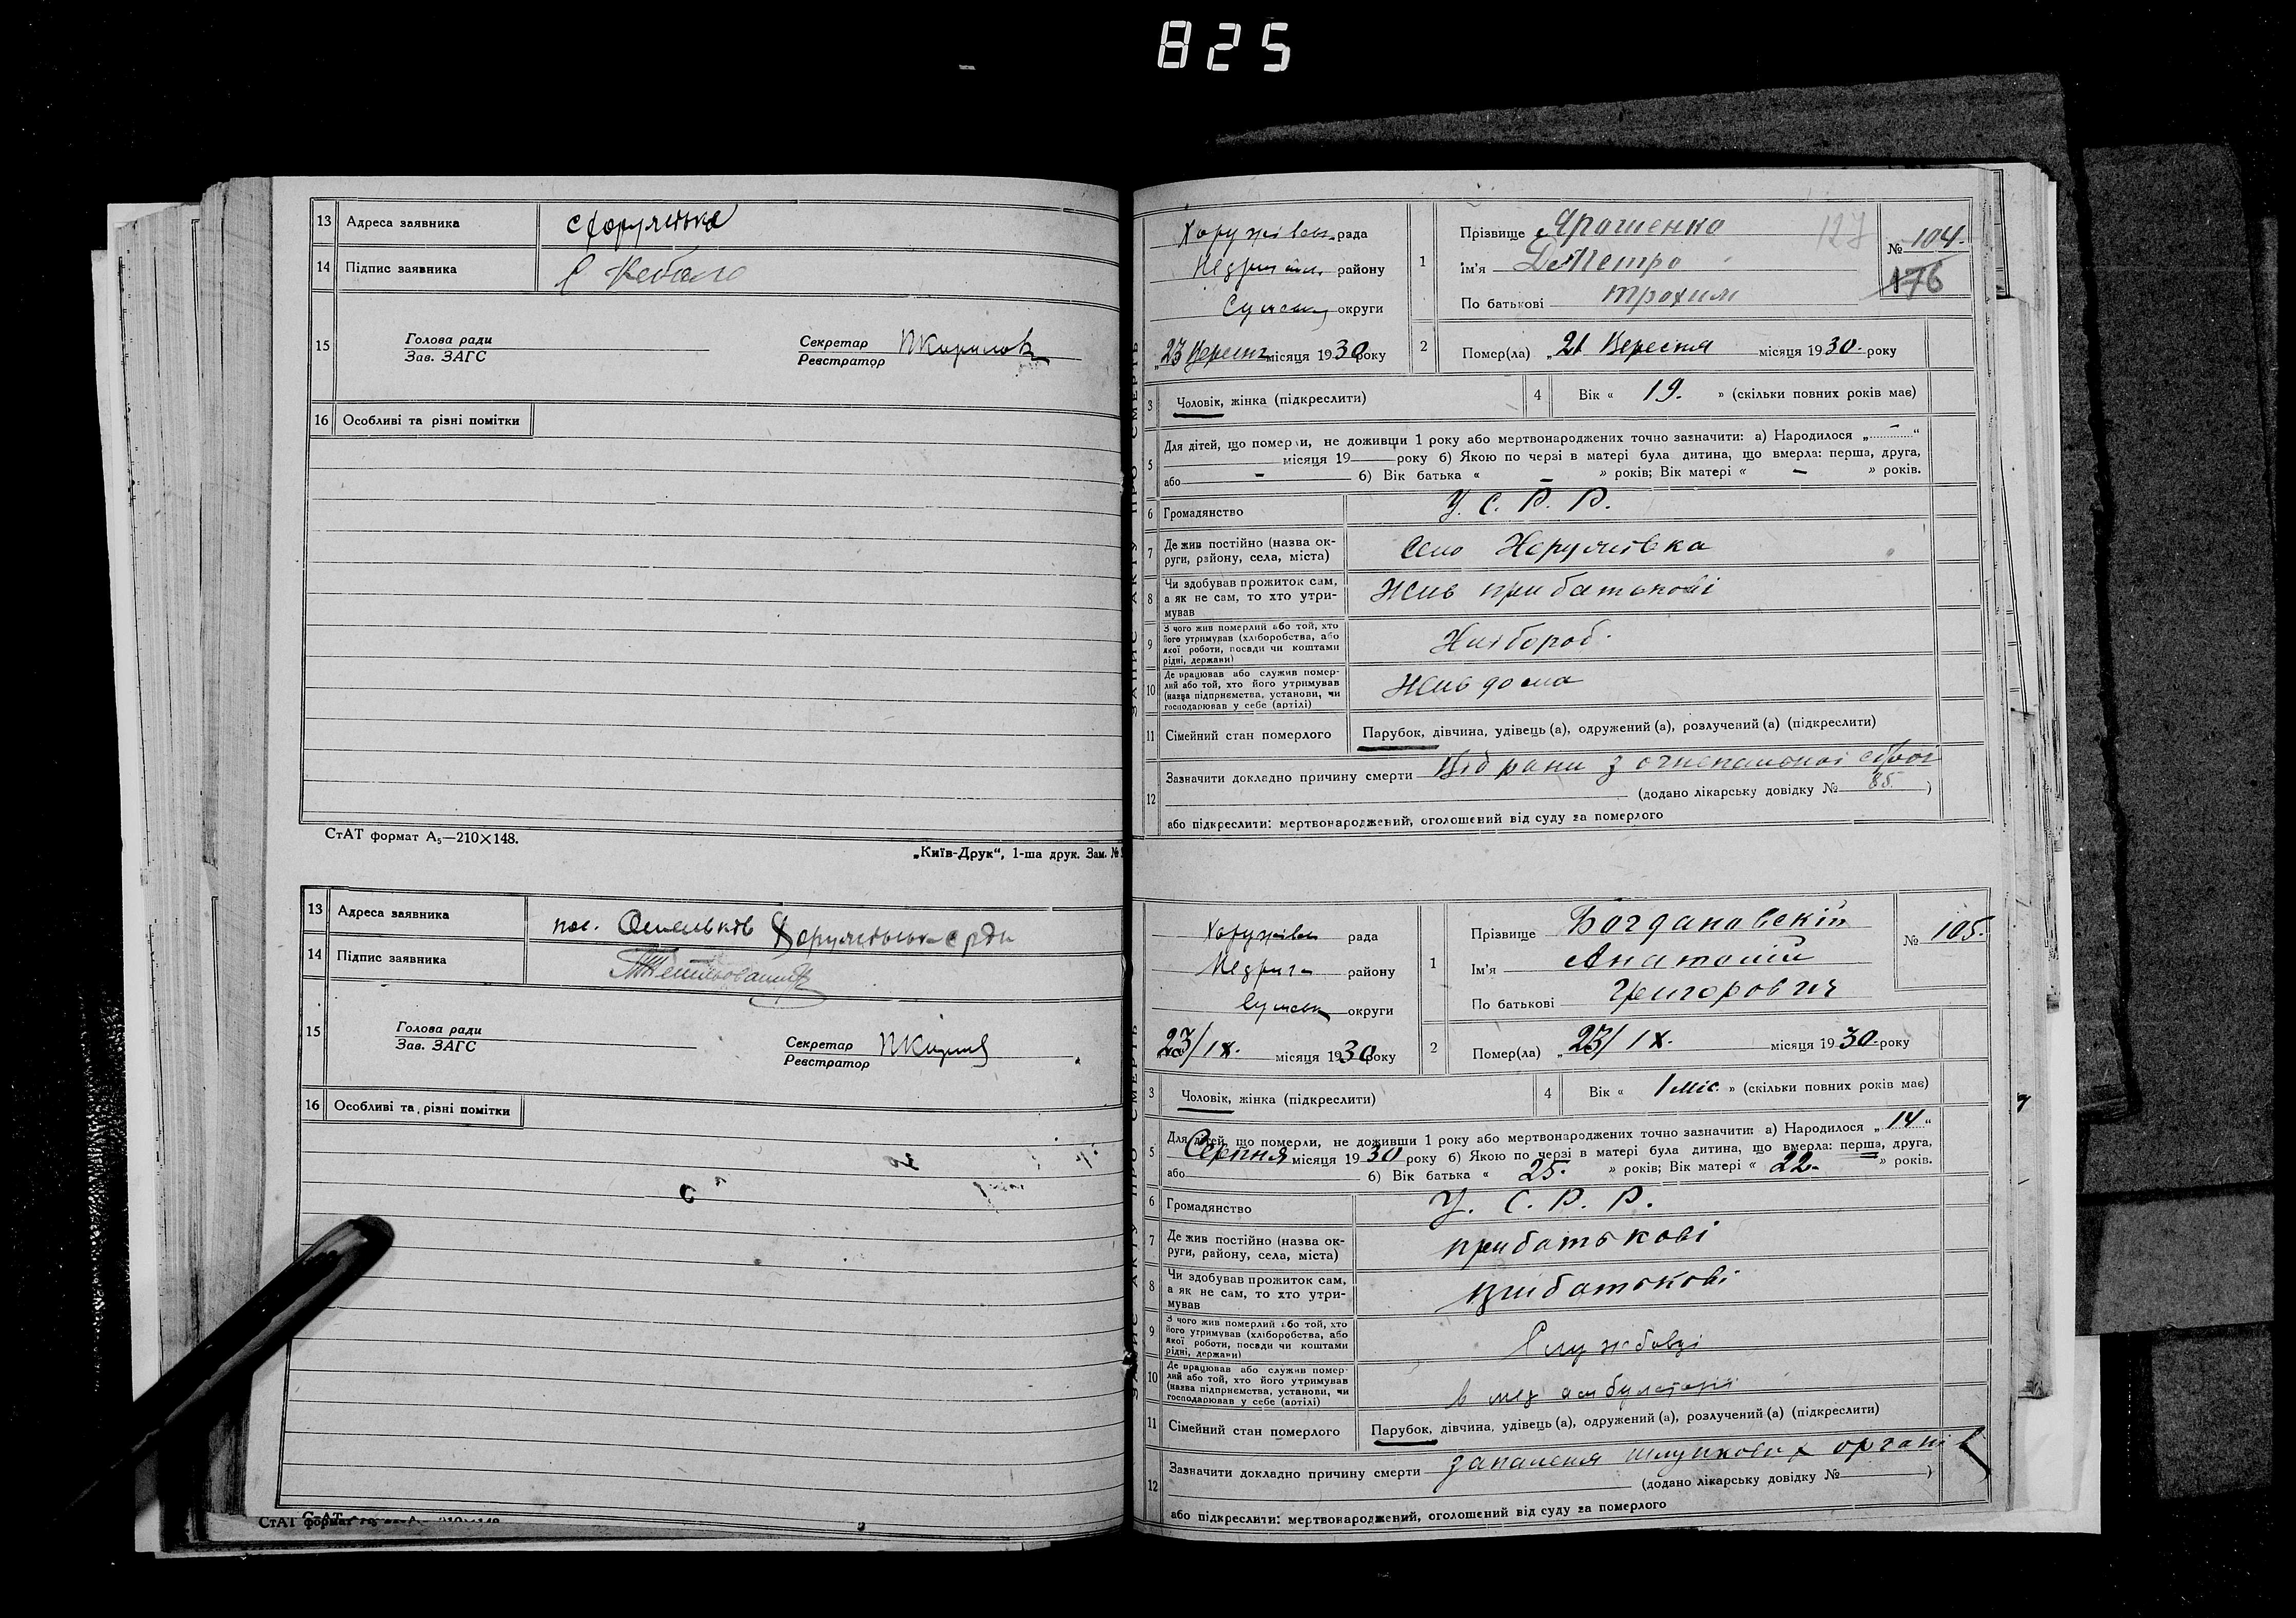 825
13 Адреса заявника
14 Підпис заявника
15 Голова ради
Зав. ЗАГС
Секретар
Реєстратор
16 Особливі та різні помітки
СтАТ формат А₅—210×148.
„Київ-Друк“, 1-ша друк. Зам. №
13 Адреса заявника
14 Підпис заявника
15 Голова ради
Зав. ЗАГС
Секретар
Реєстратор
16 Особливі та різні помітки
СтАТ формат
ЗАПИС АКТУ ПРО СМЕРТЬ
Хоружівськ рада
району
Сумськ округи
23 Вересн місяця 1930 року
1 Прізвище Ярошенко
ім'я Петро
По батькові Трохим
127
№ 104.
176
2 Помер(ла) „21 Вересня місяця 1930 року
3 Чоловік, жінка (підкреслити)
4 Вік « 19. » (скільки повних років має)
5 Для дітей, що померли, не доживши 1 року або мертвонароджених точно зазначити: а) Народилося „ - “
місяця 19 року б) Якою по черзі в матері була дитина, що вмерла: перша, друга,
або - б) Вік батька « - » років; Вік матері « - » років.
6 Громадянство У. С. Р. Р.
7 Де жив постійно (назва ок-
руги, району, села, міста) Село Хоружівка
8 Чи здобував прожиток сам,
а як не сам, то хто утри-
мував Жив при батькові
9 З чого жив померлий або той, хто
його утримував (хліборобства, або
якої роботи, посади чи коштами
рідні, держави) Хлібороб.
10 Де працював або служив помер-
лий або той, хто його утримував
(назва підприємства, установи, чи
господарював у себе (артілі) Жив дома
11 Сімейний стан померлого Парубок, дівчина, удівець (а), одружений (а), розлучений (а) (підкреслити)
12 Зазначити докладно причину смерти Від рани з огнепальної зброї
(додано лікарську довідку № 85. )
або підкреслити: мертвонароджений, оголошений від суду за померлого
ЗАПИС АКТУ ПРО СМЕРТЬ
Хоружівськ рада
району
Сумськ округи
23/IX. місяця 1930 року
1 Прізвище Богдановскій
Ім'я Анатолій
По батькові Григорович
№ 105.
2 Помер(ла) „23/IX. місяця 1930 року
3 Чоловік, жінка (підкреслити)
4 Вік « 1 міс. » (скільки повних років має)
5 Для дітей, що померли, не доживши 1 року або мертвонароджених точно зазначити: а) Народилося „14“
Серпня місяця 1930 року б) Якою по черзі в матері була дитина, що вмерла: перша, друга,
або б) Вік батька « 25. » років; Вік матері « 22. » років.
6 Громадянство У. С. Р. Р.
7 Де жив постійно (назва ок-
руги, району, села, міста) при батькові
8 Чи здобував прожиток сам,
а як не сам, то хто утри-
мував при батькові
9 З чого жив померлий або той, хто
його утримував (хліборобства, або
якої роботи, посади чи коштами
рідні, держави) Службовці
10 Де працював або служив помер-
лий або той, хто його утримував
(назва підприємства, установи, чи
господарював у себе (артілі) в мед амбулаторії
11 Сімейний стан померлого Парубок, дівчина, удівець (а), одружений (а), розлучений (а) (підкреслити)
12 Зазначити докладно причину смерти запаленя шлункових органів
(додано лікарську довідку № )
або підкреслити: мертвонароджений, оголошений від суду за померлого